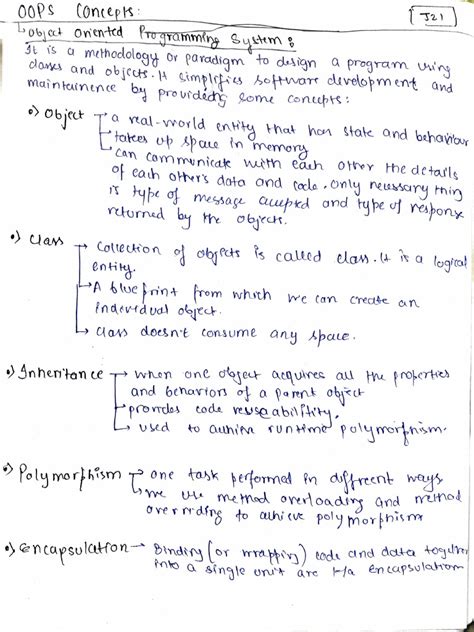 OOPS Concepts:
J21
↳ Object Oriented Programming System:
It is a methodology or paradigm to design a program using
classes and objects. It simplifies software development and
maintainence by providing some concepts:
•) Object → a real-world entity that has state and behaviour
→ takes up space in memory
→ can communicate with each other the details
of each other's data and code. Only necessary thing
is type of message accepted and type of response
returned by the objects.
•) Class → Collection of objects is called class. It is a logical
entity.
→ A blue print from which we can create an
individual object.
→ Class doesn't consume any space.
•) Inheritance → when one object acquires all the properties
and behaviors of a parent object
→ provides code reuseability.
→ used to achive runtime polymorphism.
•) Polymorphism → one task performed in different ways
→ we use method overloading and method
overriding to achieve polymorphism
•) Encapsulation → Binding (or wrapping) code and data together
into a single unit are k/a encapsulation